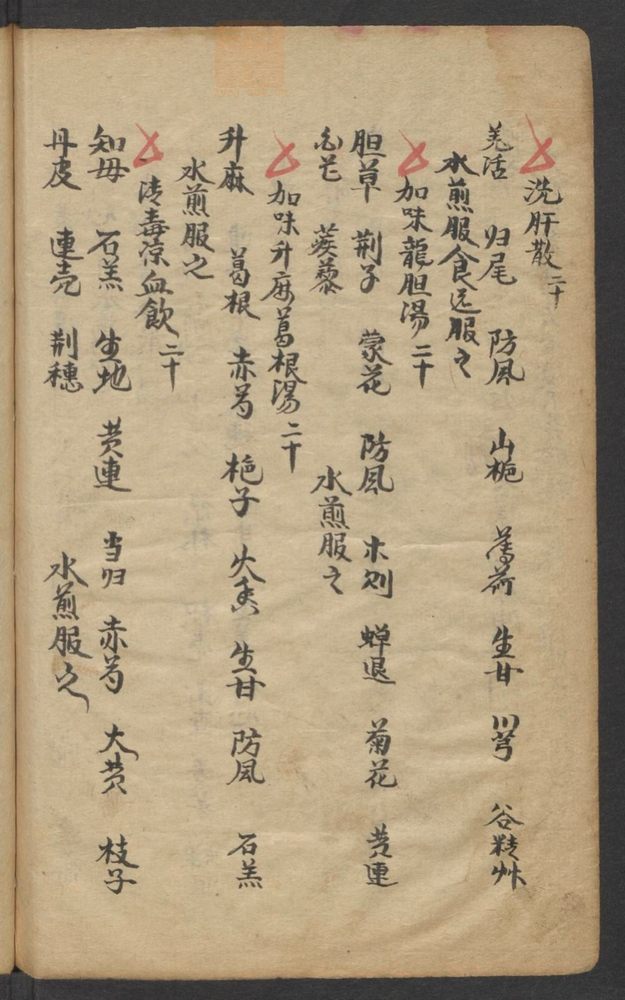 洗肝散 二十
羗活 归尾 防風 山栀 薄荷 生甘 川芎 谷精艸
水煎服食远服之
加味龍胆湯 二十
胆草 荆子 蒙花 防風 木刘 蟬退 菊花 黄連
白芷 蒺藜 水煎服之
加味升麻葛根湯 二十
升麻 葛根 赤芍 栀子 生甘 防風 石羔
水煎服之
清毒凉血飲 二十
知母 石羔 生地 黄連 当归 赤芍 大黄 枝子
丹皮 連壳 荆穗 水煎服之